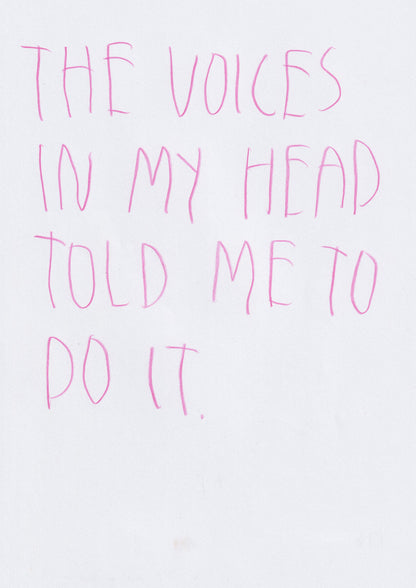 THE VOICES
IN MY HEAD
TOLD ME TO
DO IT.